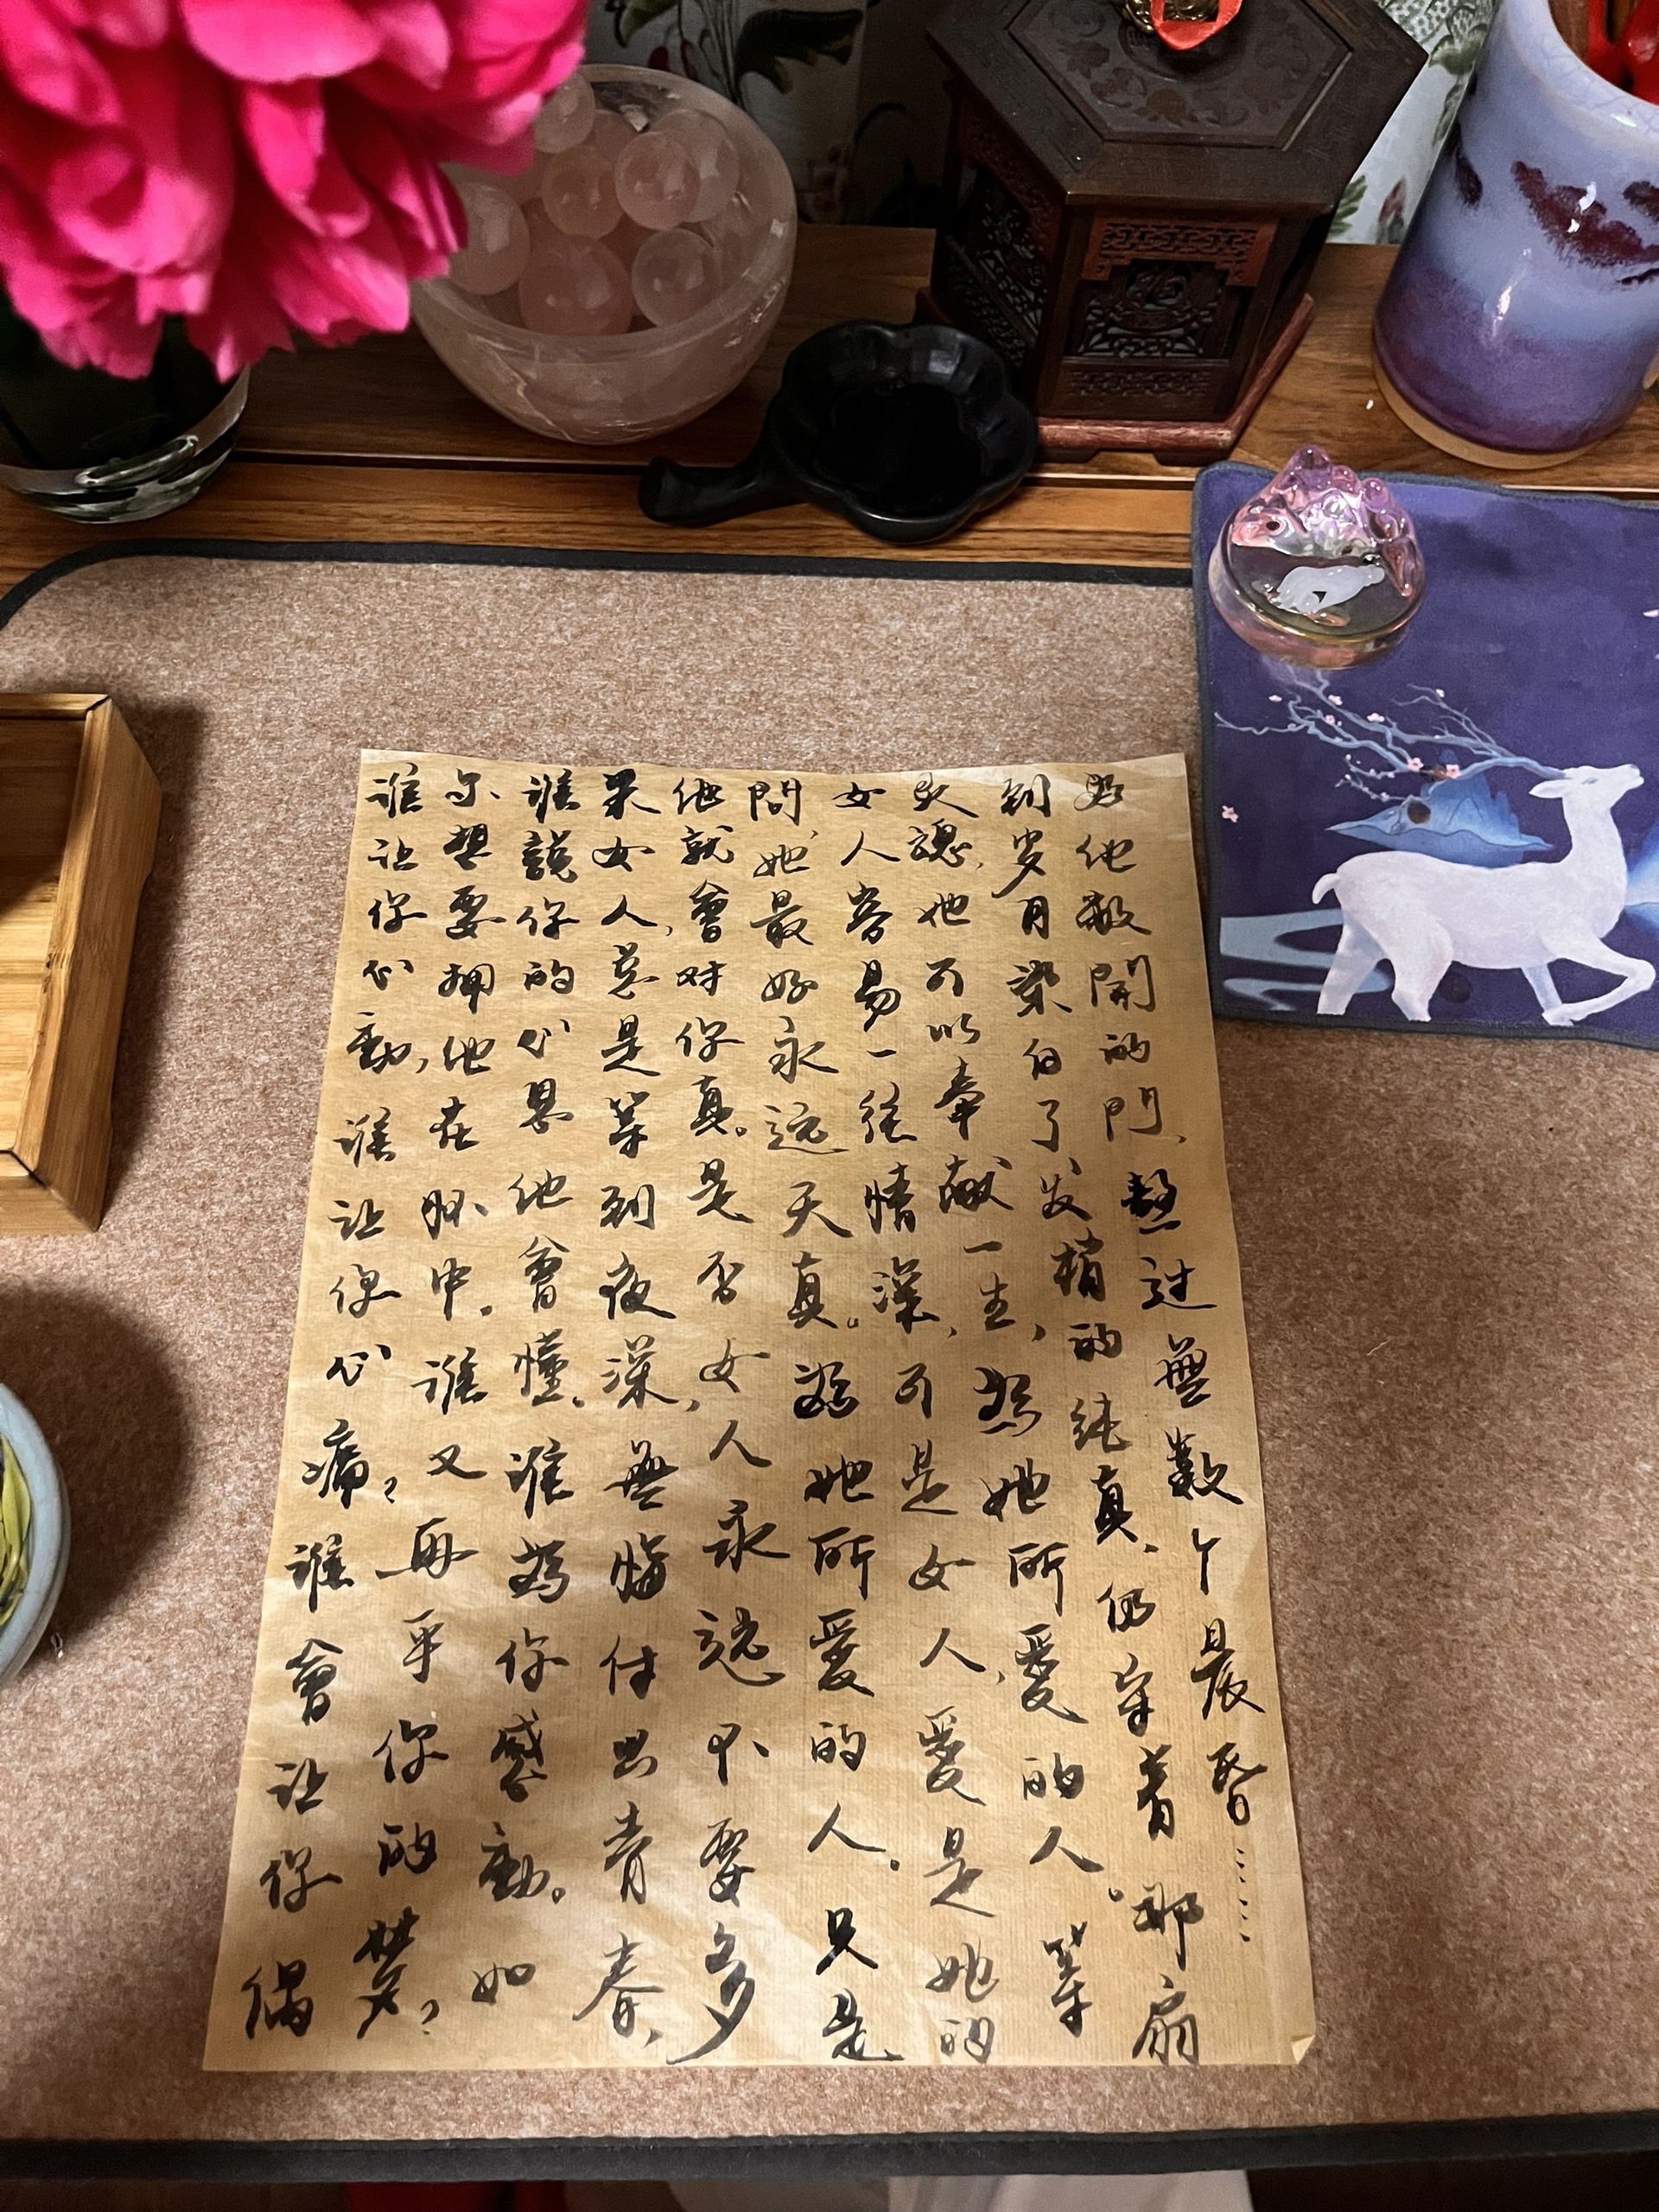 誰让你心動,誰让你心痛,誰會让你偶
尔想要拥他在怀中。誰又再乎你的梦,
誰說你的心思他會懂。誰為你感動。如
果女人,总是等到夜深,無悔付出青春,
他就會对你真。是否女人永远不要多
問,她最好永远天真。為她所愛的人。只是
女人容易一往情深,可是女人,愛是她的
灵魂,她可以奉献一生,為她所愛的人。等
到岁月染白了、发梢的纯真、仍守着那扇
为他敞開的門、熬过無數个晨昏……